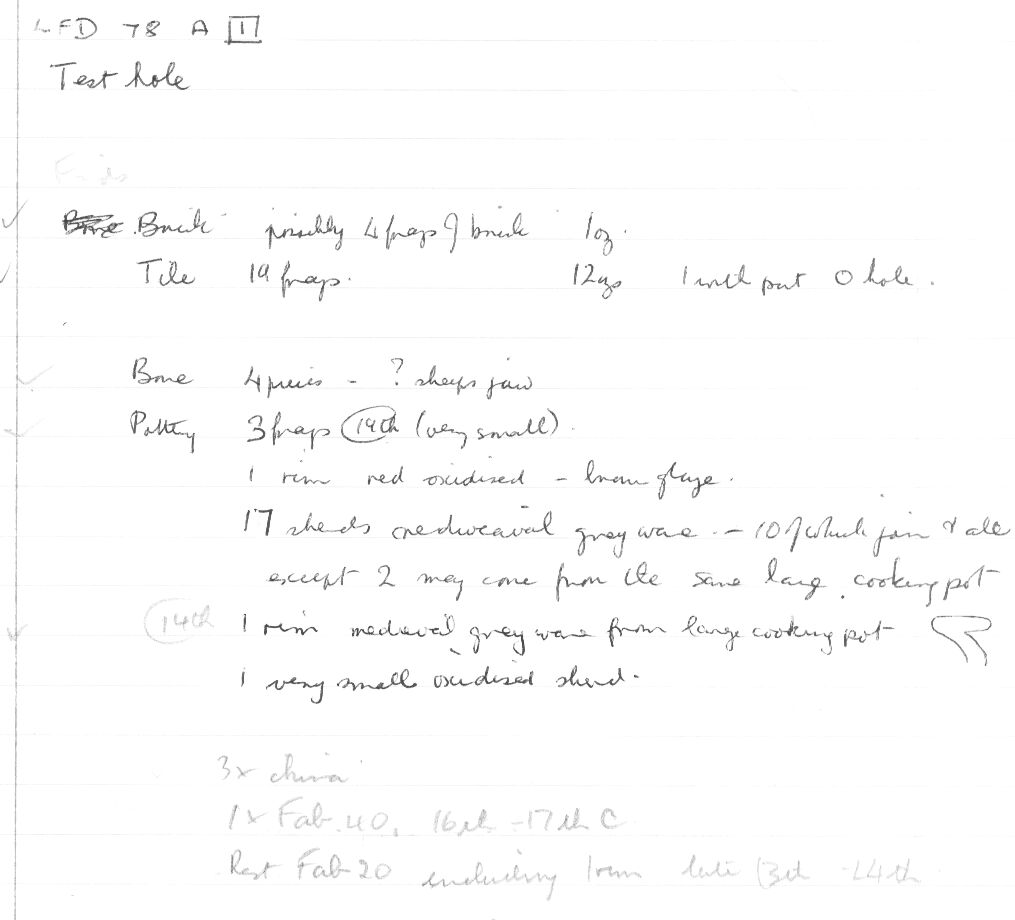 LFD 78 A 1
Test hole
Finds
Brick possibly 4 frags of brick 1oz.
Tile 19 frags. 12ozs 1 with part O hole.
Bone 4 pieces - ? sheeps jaw
Pottery 3 frags 19th (very small).
1 rim red oxidised - brown glaze.
17 sherds medieaval grey ware. - 10 of which join & all
except 2 may come from the same large cooking pot
14th 1 rim medieval grey ware from large cooking pot
1 very small oxidised sherd.
3x china
1x Fab 40, 16th - 17th C
Rest Fab 20 including 1 rim late 13th - 14th